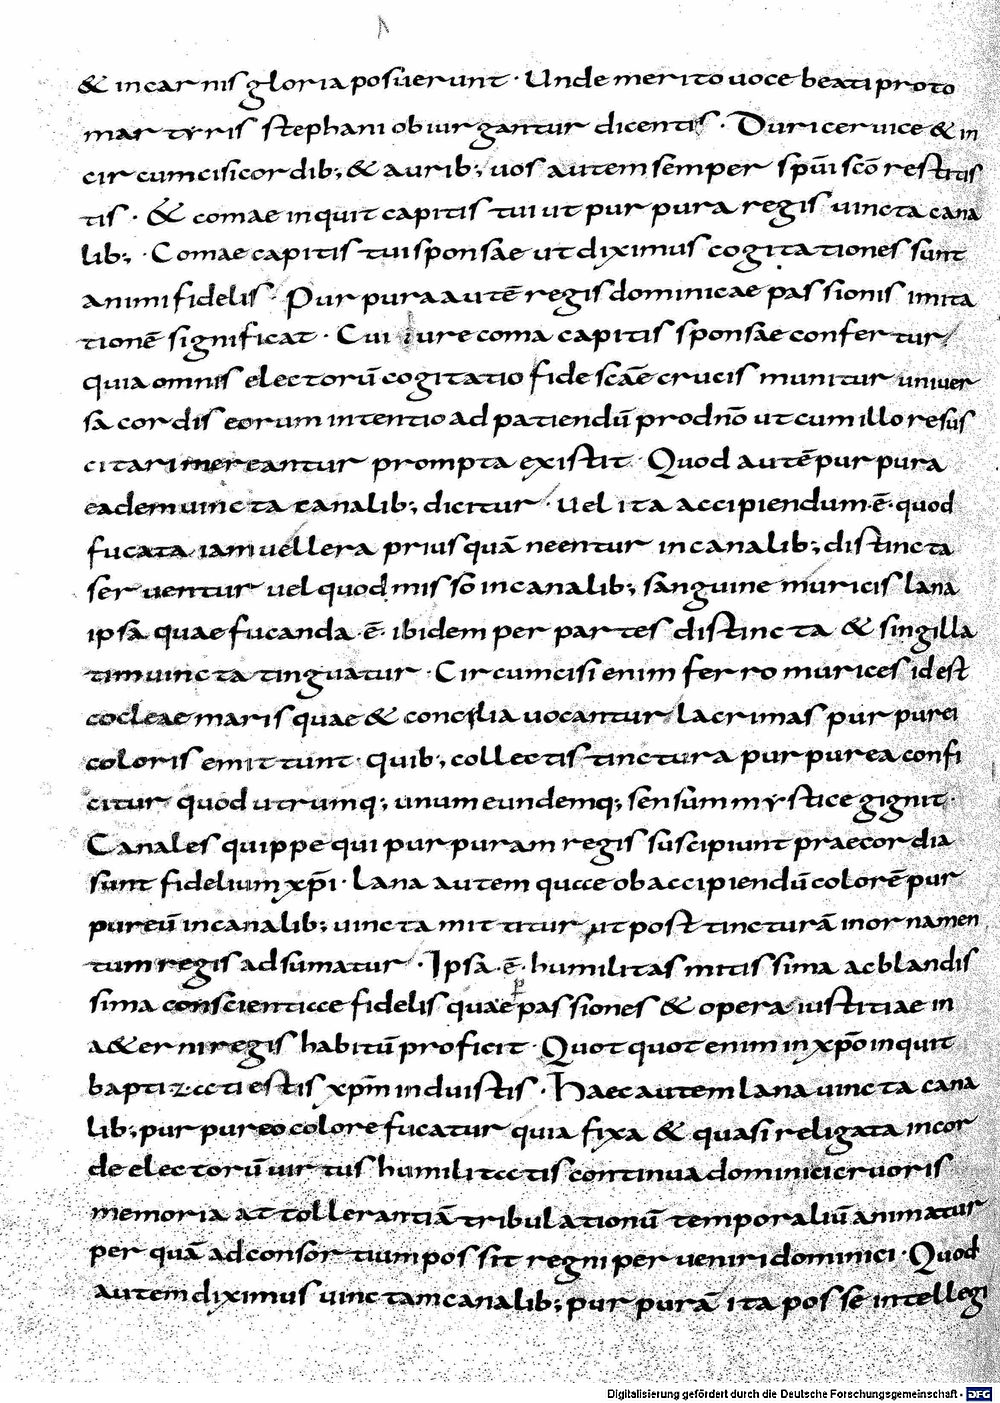 & incarnis gloria posuerunt · Unde merito uoce beati proto
martyris stephani obiurgantur dicentis · Duri ceruice & in
circumcisi cordib; & aurib; uos autem semper spūi scō restitis
tis · & comae inquit capitis tui ut purpura regis uincta cana
lib; · Comae capitis tui sponsae ut diximus cogitationes sunt
animi fidelis · Purpura autē regis dominicae passionis imita
tionē significat · Cui iure coma capitis sponsae confertur
quia omnis electorū cogitatio fide scāe crucis munitur uniuer
sa cordis eorum intentio ad patiendū pro dnō ut cum illo resus
citari mereantur prompta existit · Quod autē purpura
eadem uincta canalib; dicitur · uel ita accipiendum · ē · quod
fucata iam uellera priusquā neentur in canalib; distincta
seruentur uel quod misso in canalib; sanguine muricis lana
ipsa quae fucanda · ē · ibidem per partes distincta & singilla
tim uincta tinguatur · Circumcisi enim ferro murices id est
cocleae maris quae & concilia uocantur lacrimas purpurei
coloris emittunt · quib; collectis tinctura purpurea confi
citur quod utrumq; unum eundemq; sensum mystice gignit ·
Canales quippe qui purpuram regis suscipiunt praecordia
sunt fidelium xp̄i · Lana autem quae ob accipiendū colorē pur
pureū in canalib; uincta mittitur ut post tincturā in ornamen
tum regis adsumatur · Ipsa · ē · humilitas mitissima ac blandis
sima conscientiae fidelis quae p passiones & opera iustitiae in
a&erni regis habitū proficit · Quotquot enim in xp̄o inquit
baptizati estis xp̄m induistis · Haec autem lana uincta cana
lib; purpureo colore fucatur quia fixa & quasi religata in cor
de electorū uirtus humilitatis continua dominici cruoris
memoria at tollerantiā tribulationū temporaliū animatur
per quā ad consortium possit regni perueniri dominici · Quod
autem diximus uinctam canalib; purpurā ita posse intellegi
Digitalisierung gefördert durch die Deutsche Forschungsgemeinschaft - DFG